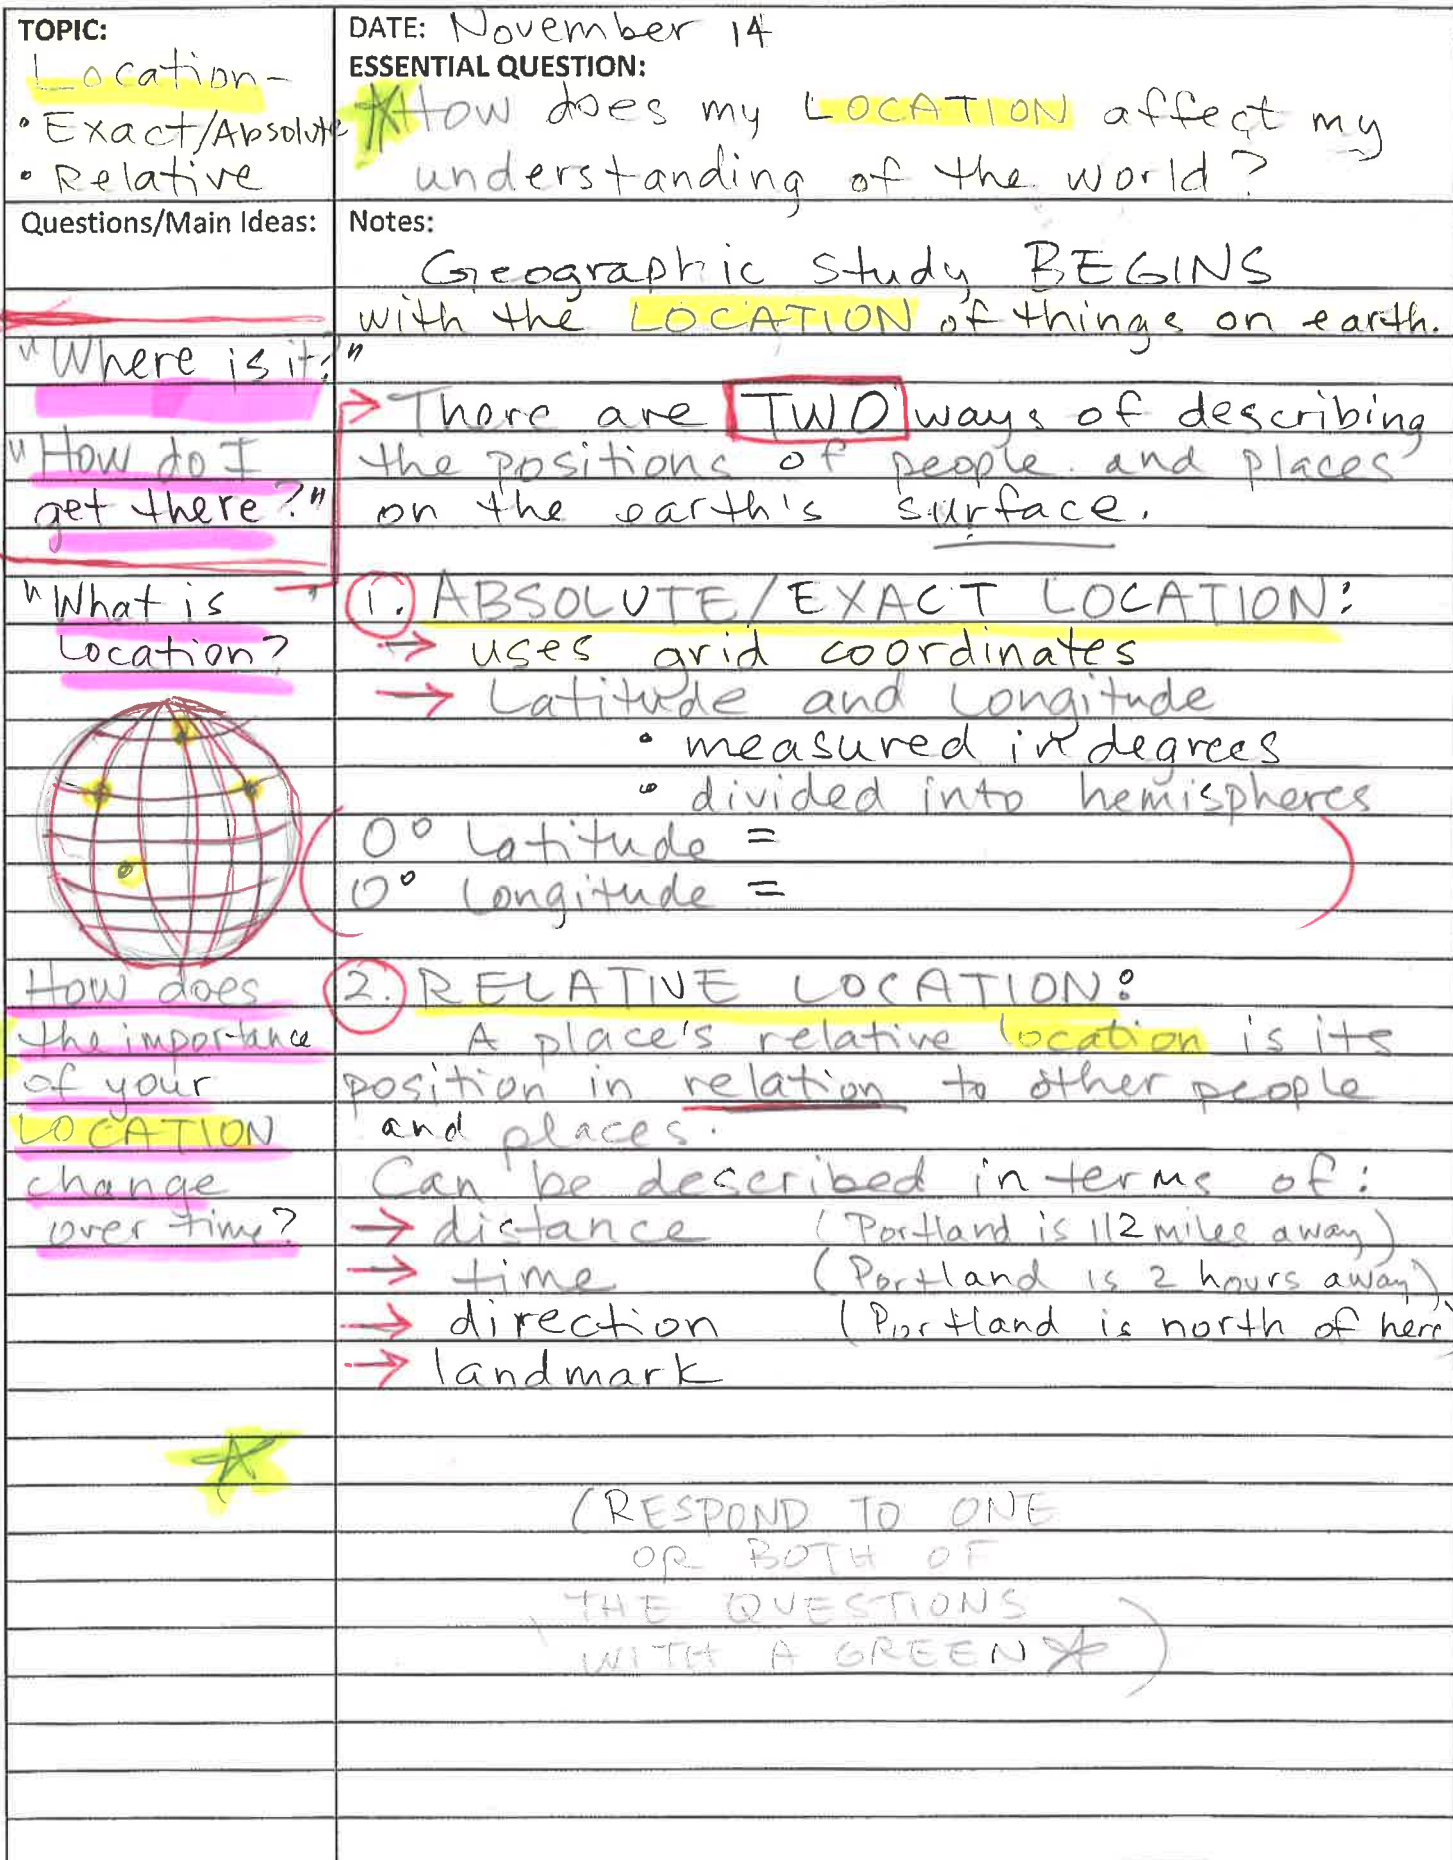 TOPIC:
Location-
• Exact/Absolute
• Relative
DATE: November 14
ESSENTIAL QUESTION:
How does my LOCATION affect my
understanding of the world?
Questions/Main Ideas:
"Where is it?"
"How do I
get there?"
"What is
Location?"
How does
the importance
of your
LOCATION
change
over time?
Notes:
Geographic study BEGINS
with the LOCATION of things on earth.
There are TWO ways of describing
the positions of people and places
on the earth's surface.
1. ABSOLUTE/EXACT LOCATION:
→ uses grid coordinates
→ Latitude and Longitude
• measured in degrees
• divided into hemispheres
0° Latitude =
0° Longitude =
2. RELATIVE LOCATION:
A place's relative location is its
position in relation to other people
and places.
Can be described in terms of:
→ distance (Portland is 112 miles away)
→ time (Portland is 2 hours away)
→ direction (Portland is north of here)
→ landmark
(RESPOND TO ONE
OR BOTH OF
THE QUESTIONS
WITH A GREEN ☆)